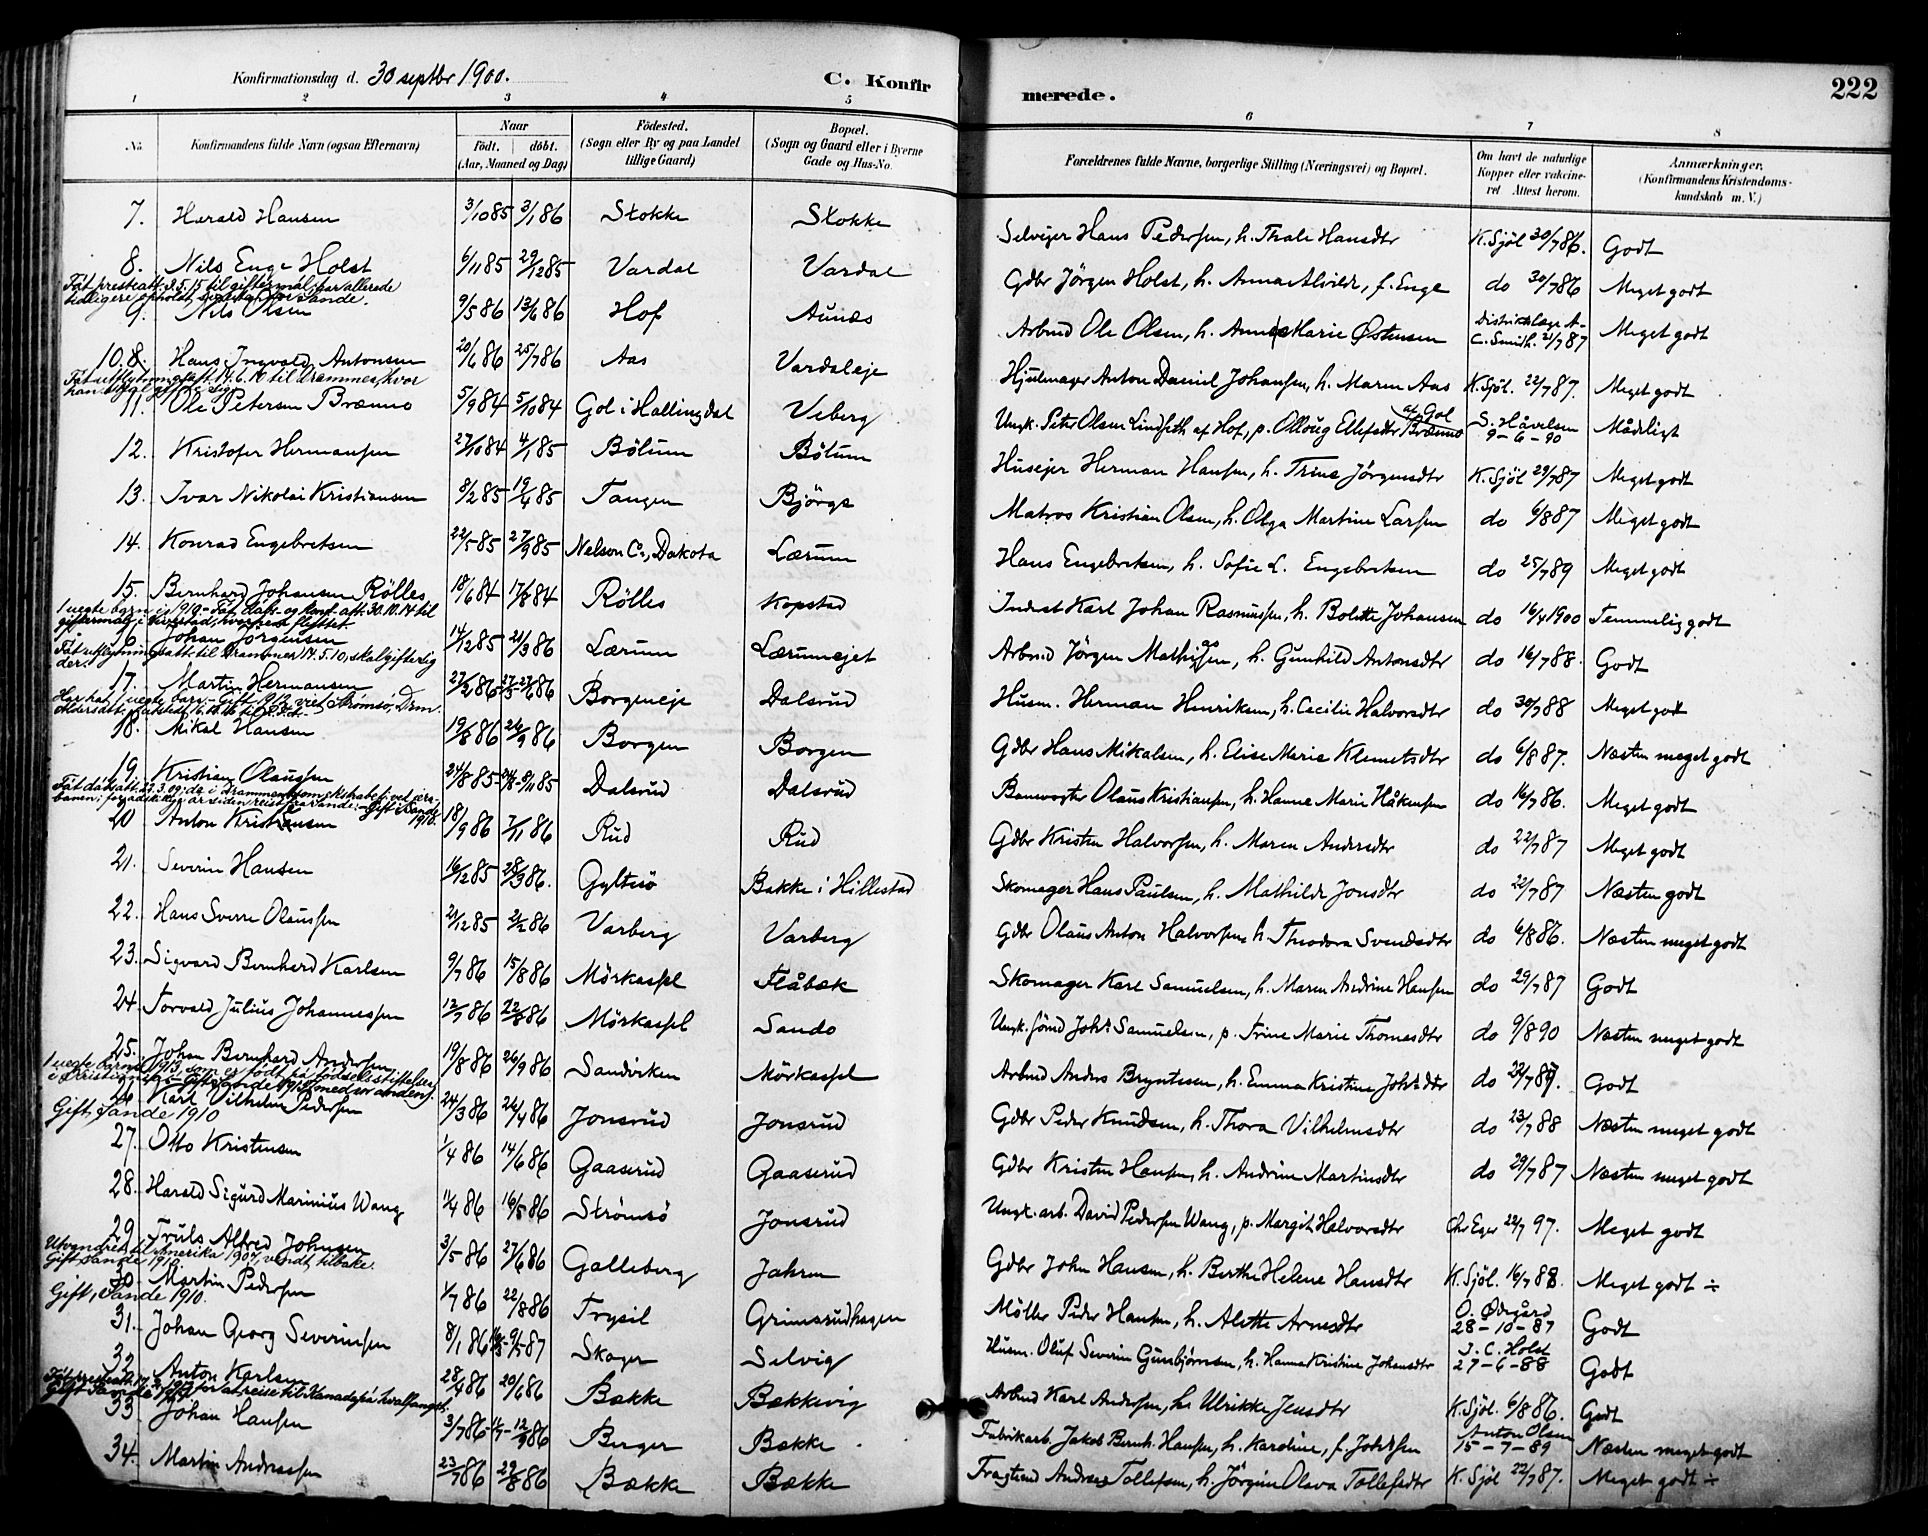 Konfirmationsdag d. 30 septbr 1900.
C. Konfirmerede.
222
1 2 3 4 5 6 7 8
No.
Konfirmandens fulde Navn (ogsaa Efternavn)
Naar
Födt. döbt.
(Aar, Maaned og Dag)
Födested.
(Sogn eller By og paa Landet
tillige Gaard)
Bopæl.
(Sogn og Gaard eller i Byerne
Gade og Hus-No.
Forældrenes fulde Navne, borgerlige Stilling (Næringsvei) og Bopæl.
Om havt de naturlige
Kopper eller vakcine-
ret Attest herom.
Anmærkninger.
(Konfirmandens Kristendoms-
kundskab m. V.)
7. Harald Hansen 3/10 85 3/1 86 Stokke Stokke Selvejer Hans Pedersen, h. Thale Hansdtr K. Sjöl 30/7 86. Godt
8. Nils Enge Holst 6/11 85 29/12 85 Vardal Vardal Gdbr Jörgen Holst, h. Anna Alvilde, f. Enge do 30/7 86 Meget godt
Fåt presteatt. 3.5.15 til giftermål; har allerede
tidligere opholdt
9. Nils Olsen 9/5 86 13/6 86 Hof Aunæs Arbmd Ole Olsen, h. Anne Marie Østensen Distriktslæge A-
C. Smith. 21/7 87 Meget godt
10. Hans Ingvald Antonsen 20/6 86 25/7 86 Aas Vardaleje Hjulmager Anton Daniel Johansen, h. Maren Aas K. Sjöl. 22/7 87. Meget godt
Fåt utflytningsatt. 14.6.10 til Drammen, hvor
han skal gifte sig.
11. Ole Petersen Brænno 5/9 84 5/10 84 Gol i Hallingdal Veberg Ungk. Peter Olsen Lindseth af Hof, p. Olloug Ellefsdtr Brænno af Gol S. Håvelsen
9-6-90 Mådeligt
12. Kristofer Hermansen 27/10 84 4/1 85 Bölum Bölum Husejer Herman Hansen, h. Trine Jörgensdtr K. Sjöl 29/7 87 Meget godt
13. Ivar Nikolai Kristiansen 8/2 85 19/4 85 Tangen Björge Matros Kristian Olsen, h. Olga Martine Larsen do 6/8 87 Meget godt
14. Konrad Engebretsen 22/5 85 27/9 85 Nelson Co., Dakota Lærum Hans Engebretsen, h. Sofie L. Engebretsen do 25/7 89 Meget godt
15. Bernhard Johansen Rölles 18/6 84 17/8 84 Rölles Kopstad Inderst Karl Johan Rasmussen, h. Bolette Johansen do 16/1 1900 Temmelig godt
1 uegte barn i 1910. Fåt dåbs- og konf.-att. 30.10.14 til
giftermål i
16. Johan Jörgensen 14/12 85 21/3 86 Lærum Lærumejet Arbmd Jörgen Mathisen, h. Gunhild Antonsdtr do 16/7 88. Godt
Fåt utflytningsatt. til Drammen 14.5.10, skal gifte sig
der.
17. Martin Hermansen 27/2 86 27/6 86 Borgeneje Dalsrud Husm. Herman Henriksen, h. Cecilie Halvorsdtr do 30/7 88 Meget godt
Har hat 1 uegte barn. Gift 1912 viet Strömsö, Drm.
18. Mikal Hansen 19/8 86 26/9 86 Borgen Borgen Gdbr Hans Mikalsen, h. Elise Marie Klemetsdtr do 6/8 87. Næsten meget godt
19 Kristian Olaussen 24/8 85 8/11 85 Dalsrud Dalsrud Banevogter Olaus Kristiansen, h. Hanne Marie Håkensen do 16/7 86. Meget godt
Fåt dåbsatt. 23.3.09, da i Drammen
20 Anton Kristensen 18/9 86 7/11 86 Rud Rud Gdbr Kristen Halvorsen, h. Maren Andersdtr do 22/7 87 Meget godt
21. Severin Hansen 16/12 85 28/3 86. Gyltesö Bakke i Hillestad Skomager Hans Paulsen, h. Mathilde Jonsdtr do 22/7 87 Næsten godt
22. Hans Sverre Olaussen 21/12 85 2/2 86 Varberg Varberg Gdbr Olaus Anton Halvorsen, h. Theodora Svendsdtr do 6/8 86. Næsten meget godt
23. Sigvard Bernhard Karlsen 9/7 86 15/8 86 Mörkaspl Flåbæk Skomager Karl Samuelsen, h. Maren Andrine Hansen do 29/7 87 Godt
24. Torvald Julius Johannessen 12/7 86 22/8 86 Mörkaspl Sando Ungk. sömd Johs Samuelsen, p. Trine Marie Thomasdtr do 9/8 90 Næsten meget godt
25. Johan Bernhard Andersen 19/8 86 26/9 86 Sandviken Mörkaspl Arbmd Anders Bryntesen, h. Emma Kristine Johsdtr do 22/7 87. Godt
1 uegte barn i 1913, som er født på fødselsstiftelsen
i Kristiania. - Gift, Sande 1915 med en anden.
26. Karl Vilhelm Pedersen 24/3 86 26/4 86 Jonsrud Jonsrud Gdbr Peder Knudsen, h. Thora Vilhelmsdtr do 23/7 88 Næsten meget godt
Gift, Sande 1910
27. Otto Kristensen 1/4 86 14/6 86 Gaaserud Gaaserud Gdbr Kristen Hansen, h. Andrine Martinsdtr do 29/7 87 Næsten meget godt
28. Harald Sigurd Marinius Wang 1/4 86 16/5 86 Strömsö Jonsrud Ungk. arb. David Pedersen Wang, p. Margit Halvorsdtr Chr Eger 22/7 97. Meget godt
29. Truls Alfred Johnsen 3/5 86 27/6 86 Galleberg Jahren Gdbr John Hansen, h. Berthe Helene Hansdtr K. Sjöl. 16/7 88. Meget godt ÷
Utvandret til Amerika 1907, vendt tilbake.
Gift, Sande 1918.
30. Martin Pedersen 1/7 86 22/8 86 Trysil Grimsrudhagen Möller Peder Hansen, h. Alette Arnesdtr O. Ødegård
28-10-87 Godt
Gift, Sande 1910.
31. Johan Georg Severinsen 8/1 86 9/5 87 Skoger Selvig Husm. Oluf Severin Gunbjørnsen, h. Hanna Kristine Johansdtr J. C. Holst
27-6-88 Godt
32. Anton Karlsen 28/4 86 20/6 86 Bække Bækkevig Arbmd Karl Andersen, h. Ulrikke Jensdtr K. Sjöl. 6/8 86. Godt
33 Johan Hansen 3/7 86 12/9 86 Berger Bække Fabrikarb. Jakob Bernh. Hansen, h. Karoline, f. Johsen Anton Olsen
15-7-89 Næsten meget godt
34. Martin Andreassen 23/7 86 29/8 86 Bække Bække Fragtemd Andreas Tollefsen, h. Jörgine Olava Tollefsdtr K. Sjöl 22/7 87. Meget godt ÷